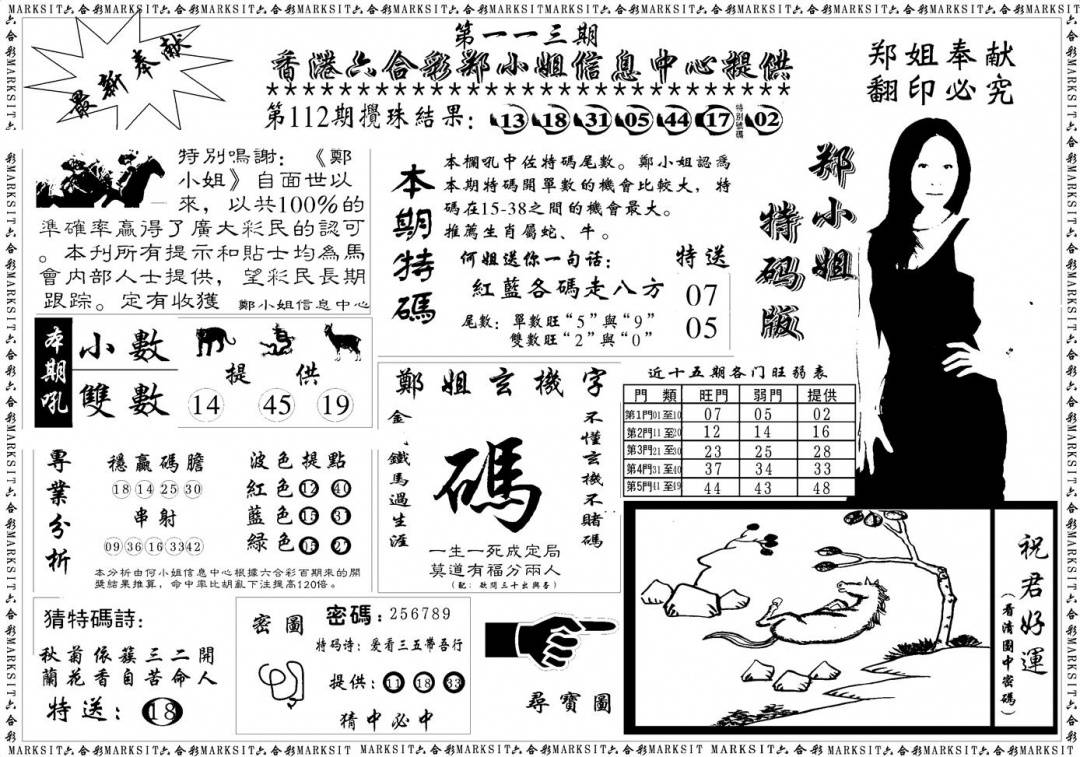 MARKSIT六合彩MARKSIT六合彩MARKSIT六合彩MARKSIT六合彩MARKSIT六合彩MARKSIT六合彩MARKSIT六合彩MARKSIT六合彩MARKSIT六合彩MARKSIT六合彩MARKSIT
最新奉献
第一一三期
香港六合彩郑小姐信息中心提供
第112期攪珠結果：13 18 31 05 44 17 特別號碼 02
郑姐奉献
翻印必究
特別鳴謝：《鄭
小姐》自面世以
來，以共100%的
準確率贏得了廣大彩民的認可
。本刊所有提示和貼士均為馬
會内部人士提供，望彩民長期
跟踪。定有收獲 鄭小姐信息中心
本期特碼
本欄吼中佐特碼尾數。鄭小姐認為
本期特碼開單數的機會比較大，特
碼在15-38之間的機會最大。
推薦生肖屬蛇、牛。
何姐送你一句话：
紅藍各碼走八方
尾數：單數旺“5”與“9”
雙數旺“2”與“0”
特送
07
05
郑小姐
特码版
本期吼
小數
雙數
提供
14 45 19
專業分析
穩贏碼膽
18 14 25 30
串射
09 36 16 33 42
波色提點
紅色 12 40
藍色 15 31
綠色
本分析由何小姐信息中心根據六合彩百期來的開
獎結果推算，命中率比胡亂下注提高120倍。
鄭姐玄機字
金
鐵馬過生涯
碼
不懂玄機不賭碼
一生一死成定局
莫道有福分兩人
近十五期各门旺弱表
門類 旺門 弱門 提供
第1門01至10 07 05 02
第2門11至20 12 14 16
第3門21至30 23 25 28
第4門31至40 37 34 33
第5門41至49 44 43 48
猜特碼詩：
秋菊依簇三二開
蘭花香自苦命人
特送：18
密圖
密碼：256789
特码诗：爱看三五帶吾行
提供：11 18 33
猜中必中
尋寶圖
祝君好運
（看清圖中密碼）
MARKSIT六合彩MARKSIT六合彩MARKSIT六合彩MARKSIT六合彩MARKSIT MARKSIT六合彩MARKSIT六合彩MARKSIT六合彩MARKSIT MARKSIT六合彩MARKSIT六合彩MARKSIT六合彩MARKSIT